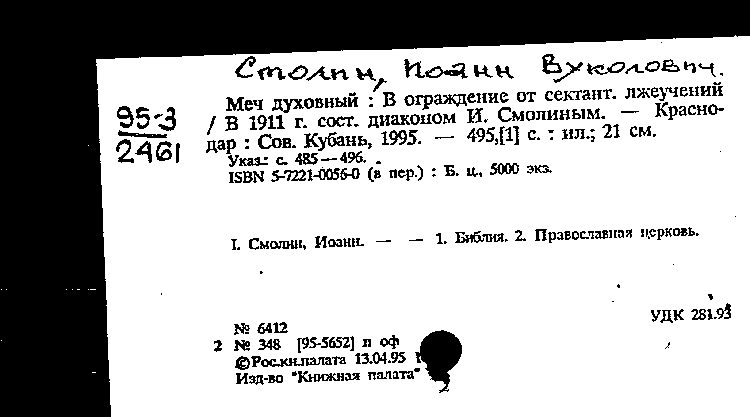 Смолин, Иоанн Вуколович.
Меч духовный : В ограждение от сектант. лжеучений
95-3
/ В 1911 г. сост. диаконом И. Смолиным. — Красно-
2461
дар : Сов. Кубань, 1995. — 495,[1] с. : ил.; 21 см.
Указ.: с. 485—496.
ISBN 5-7221-0056-0 (в пер.) : Б. ц., 5000 экз.
I. Смолин, Иоанн. — — 1. Библия. 2. Православная церковь.
УДК 281.93
№ 6412
2 № 348 [95-5652] п оф
©Рос.кн.палата 13.04.95
Изд-во "Книжная палата"
2